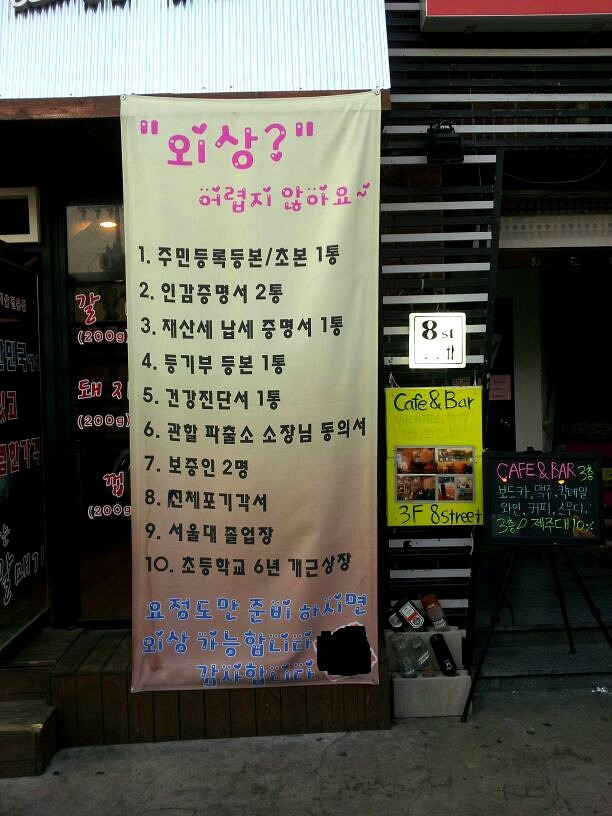 "외상?"
어렵지 않아요~
1. 주민등록등본/초본 1통
2. 인감증명서 2통
3. 재산세 납세 증명서 1통
4. 등기부 등본 1통
5. 건강진단서 1통
6. 관할 파출소 소장님 동의서
7. 보증인 2명
8. 신체포기각서
9. 서울대 졸업장
10. 초등학교 6년 개근상장
요정도만 준비 하시면
외상 가능합니다
감사합니다
갈
(200g)
돼지
(200g)
껍
(200g)
8 st
Cafe & Bar
3F 8street
CAFE & BAR 3층
보드카, 맥주, 칵테일
와인, 커피, 스무디,